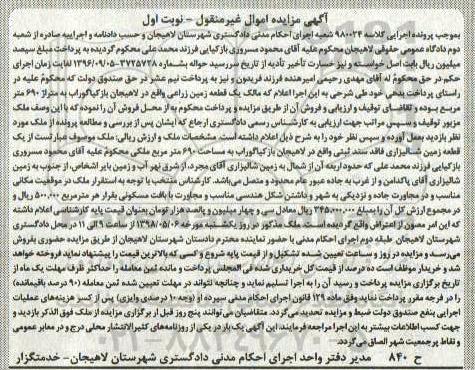 آگهی مزایده اموال غیرمنقول - نوبت اول
بموجب پرونده اجرایی کلاسه ۹۸۰۰۲۴ شعبه اجرای احکام مدنی دادگستری شهرستان لاهیجان و حسب دادنامه و اجراییه صادره از شعبه
دوم دادگاه عمومی حقوقی لاهیجان محکوم علیه آقای محمود مسروری بازکیایی فرزند محمد علی محکوم گردیده به پرداخت مبلغ سیصد
میلیون ریال بابت اصل خواسته و نیز خسارت تأخیر تأدیه از تاریخ سررسید حواله بشماره ۳۷۲۵۷۲۸-۱۳۹۶/۰۹/۰۵ لغایت زمان اجرای
حکم در حق محکوم له آقای مهدی رحیمی امیرهنده فرزند فریدون و نیز به پرداخت نیم عشر در حق صندوق دولت که محکوم علیه در
راستای پرداخت بدهی خود طی شرحی به این اجرا اعلام که مالک یک قطعه زمین زراعی واقع در لاهیجان بازکیاگوراب به متراژ ۶۹۰ متر
مربع بوده و تقاضای توقیف و ارزیابی و فروش آن از طریق مزایده و پرداخت محکوم به از محل فروش آن را نموده که با این وصف ملک
مزبور توقیف و سپس مراتب جهت ارزیابی به کارشناس رسمی دادگستری ارجاع که ایشان پس از بررسی و مطالعه پرونده از ملک مورد
نظر بازدید بعمل آورده و سپس نظر خود را به شرح ذیل اعلام داشته است. مشخصات ملک و ارزش ریالی: ملک موصوف عبارتست از یک
قطعه زمین شالیزاری فاقد سند ثبتی واقع در لاهیجان بازکیاگوراب به مساحت ۶۹۰ متر مربع ملکی محکوم علیه آقای محمود مسروری
بازکیایی فرزند محمد علی که حدود اربعه آن از شمال به زمین شالیزاری آقای مجرد، از شرق نهر آب و زمین بایر اشخاص، از جنوب به زمین
شالیزاری آقای پاکدامن و از غرب به جاده عبور عام محدود و متصل می‌باشد. کارشناس منتخب با توجه به استقرار ملک در موقعیت مکانی
مناسب و در مجاورت جاده و نزدیکی به شهر و داشتن شکل هندسی مناسب و مجاورت با بافت مسکونی بقرار هر مترمربع ۵۰۰,۰۰۰ ریال و
در مجموع ارزش کل آن را بمبلغ ۳۴۵,۰۰۰,۰۰۰ ریال معادل سی و چهار میلیون و پانصد هزار تومان بعنوان قیمت پایه کارشناسی اعلام داشته
که این امر مصون از اعتراض واقع گردیده است. ملک مذکور در روز یکشنبه مورخه ۱۳۹۸/۰۵/۰۶ از ساعت ۹ الی ۱۱ در محل دادگستری
شهرستان لاهیجان طبقه دوم اجرای احکام مدنی با حضور نماینده محترم دادستان شهرستان لاهیجان از طریق مزایده حضوری بفروش
می‌رسد و مزایده در روز و ساعت تعیین شده تشکیل و از قیمت پایه شروع و کسی که بالاترین قیمت را پیشنهاد نماید فروخته خواهد
شد و خریدار موظف است ده درصد از قیمت کل خریداری شده فی المجلس پرداخت و مانده ثمن معامله را حداکثر ظرف مهلت یک ماه از
تاریخ برگزاری مزایده پرداخت و رسید آن را به اجرا تسلیم نماید و چنانچه نتواند در مهلت تعیین شده ثمن معامله (۹۰ درصد باقیمانده)
را در فرجه مقرر پرداخت نماید وفق ماده ۱۲۹ قانون اجرای احکام مدنی سپرده او (وجه ۱۰ درصدی واریزی) پس از کسر هزینه‌های عملیات
اجرایی بنفع صندوق دولت ضبط و مزایده تجدید می‌گردد. متقاضیان می‌توانند پنج روز قبل از برگزاری مزایده از ملک فوق الذکر بازدید و
جهت کسب اطلاعات بیشتر به این اجرا مراجعه فرمایند. این آگهی یک بار در یکی از روزنامه‌های کثیرالانتشار محلی درج و در معابر عمومی
و نقاط پرجمعیت شهر الصاق می‌گردد.
ح ۸۴۰ مدیر دفتر واحد اجرای احکام مدنی دادگستری شهرستان لاهیجان - خدمتگزار